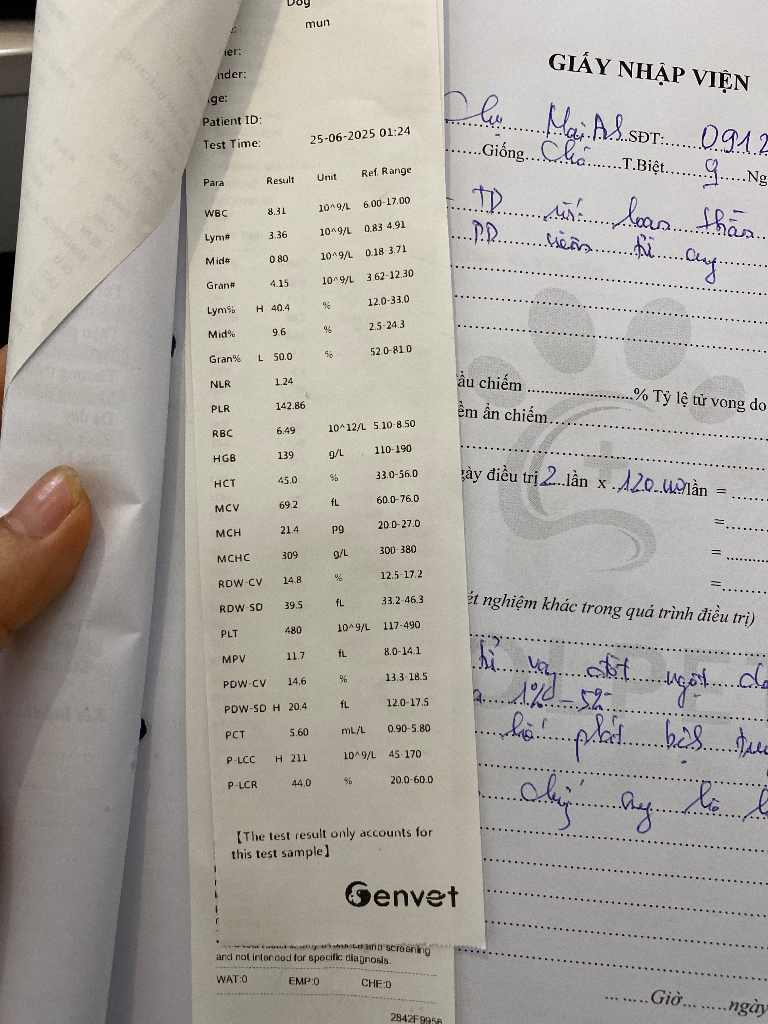 Dog
mun
Patient ID:
Test Time: 25-06-2025 01:24
Para Result Unit Ref. Range
WBC 8.31 10^9/L 6.00-17.00
Lym# 3.36 10^9/L 0.83-4.91
Mid# 0.80 10^9/L 0.18-3.71
Gran# 4.15 10^9/L 3.62-12.30
Lym% H 40.4 % 12.0-33.0
Mid% 9.6 % 2.5-24.3
Gran% L 50.0 % 52.0-81.0
NLR 1.24
PLR 142.86
RBC 6.49 10^12/L 5.10-8.50
HGB 139 g/L 110-190
HCT 45.0 % 33.0-56.0
MCV 69.2 fL 60.0-76.0
MCH 21.4 pg 20.0-27.0
MCHC 309 g/L 300-380
RDW-CV 14.8 % 12.5-17.2
RDW-SD 39.5 fL 33.2-46.3
PLT 480 10^9/L 117-490
MPV 11.7 fL 8.0-14.1
PDW-CV 14.6 % 13.3-18.5
PDW-SD H 20.4 fL 12.0-17.5
PCT 5.60 mL/L 0.90-5.80
P-LCC H 211 10^9/L 45-170
P-LCR 44.0 % 20.0-60.0
【The test result only accounts for
this test sample】
Genvet
and screening
and not intended for specific diagnosis.
WAT:0 EMP:0 CHE:0
2842F9956
GIẤY NHẬP VIỆN
Mai SĐT: 0912
Giống Chó T.Biệt 9
TD loạn thần
PD
chiếm % Tỷ lệ tử vong do
ẩn chiếm
điều trị 2 lần x lần =
=
=
=
nghiệm khác trong quá trình điều trị)
đột ngột
1% - 5%
phát bệnh
Giờ ngày